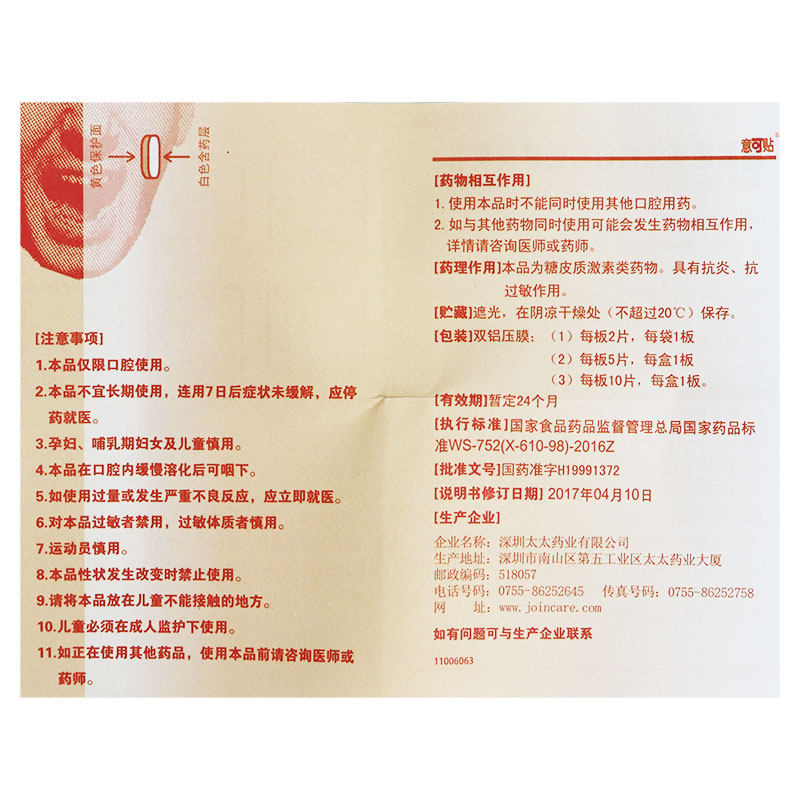 黄色保护面
白色含药层
[注意事项]
1.本品仅限口腔使用。
2.本品不宜长期使用，连用7日后症状未缓解，应停
药就医。
3.孕妇、哺乳期妇女及儿童慎用。
4.本品在口腔内缓慢溶化后可咽下。
5.如使用过量或发生严重不良反应，应立即就医。
6.对本品过敏者禁用，过敏体质者慎用。
7.运动员慎用。
8.本品性状发生改变时禁止使用。
9.请将本品放在儿童不能接触的地方。
10.儿童必须在成人监护下使用。
11.如正在使用其他药品，使用本品前请咨询医师或
药师。
意可贴
[药物相互作用]
1. 使用本品时不能同时使用其他口腔用药。
2. 如与其他药物同时使用可能会发生药物相互作用，
详情请咨询医师或药师。
[药理作用]本品为糖皮质激素类药物。具有抗炎、抗
过敏作用。
[贮藏]遮光，在阴凉干燥处（不超过20℃）保存。
[包装]双铝压膜；（1）每板2片，每袋1板
（2）每板5片，每盒1板
（3）每板10片，每盒1板。
[有效期]暂定24个月
[执行标准]国家食品药品监督管理总局国家药品标
准WS-752(X-610-98)-2016Z
[批准文号]国药准字H19991372
[说明书修订日期] 2017年04月10日
[生产企业]
企业名称：深圳太太药业有限公司
生产地址：深圳市南山区第五工业区太太药业大厦
邮政编码：518057
电话号码：0755-86252645 传真号码：0755-86252758
网 址：www.joincare.com
如有问题可与生产企业联系
11006063